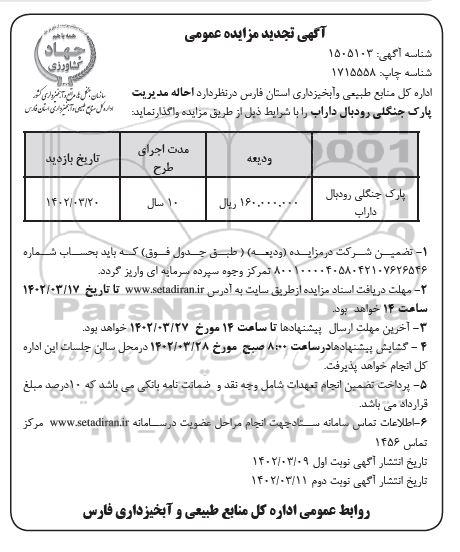 آگهی تجدید مزایده عمومی
جهاد
کشاورزی
سازمان جنگل‌ها، مراتع و آبخیزداری کشور
اداره کل منابع طبیعی و آبخیزداری استان فارس
شناسه آگهی: ۱۵۰۵۱۰۳
شناسه چاپ: ۱۷۱۵۵۵۸
اداره کل منابع طبیعی وآبخیزداری استان فارس درنظردارد احاله مدیریت
پارک جنگلی رودبال داراب را با شرایط ذیل از طریق مزایده واگذارنماید:
ودیعه مدت اجرای طرح تاریخ بازدید
پارک جنگلی رودبال داراب ۱۶۰,۰۰۰,۰۰۰ ریال ۱۰ سال ۱۴۰۲/۰۳/۲۰
۱- تضمین شرکت درمزایده (ودیعه) ( طبق جدول فوق) که باید بحساب شماره
۸۰۰۱۰۰۰۰۴۰۵۸۰۴۲۱۰۷۶۲۶۵۴۶ تمرکز وجوه سپرده سرمایه ای واریز گردد.
۲- مهلت دریافت اسناد مزایده ازطریق سایت به آدرس www.setadiran.ir تا تاریخ ۱۴۰۲/۰۳/۱۷
ساعت ۱۴ خواهد بود.
۳- آخرین مهلت ارسال پیشنهادها تا ساعت ۱۴ مورخ ۱۴۰۲/۰۳/۲۷ خواهد بود.
۴ - گشایش پیشنهادهادرساعت ۸:۰۰ صبح مورخ ۱۴۰۲/۰۳/۲۸ درمحل سالن جلسات این اداره
کل انجام خواهد پذیرفت.
۵- پرداخت تضمین انجام تعهدات شامل وجه نقد و ضمانت نامه بانکی می باشد که ۱۰درصد مبلغ
قرارداد می باشد.
۶-اطلاعات تماس سامانه ستادجهت انجام مراحل عضویت درسامانه www.setadiran.ir مرکز
تماس ۱۴۵۶
تاریخ انتشار آگهی نوبت اول ۱۴۰۲/۰۳/۰۹
تاریخ انتشار آگهی نوبت دوم ۱۴۰۲/۰۳/۱۱
روابط عمومی اداره کل منابع طبیعی و آبخیزداری فارس
ParsNamadData